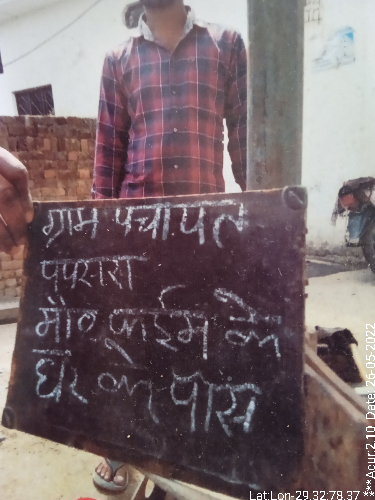 ग्राम पंचायत
पपसरा
मौ0 काईम के
घर के पास
Lat:Lon-29.32:78.37
***Acur:2.10 Date:26-05-2022